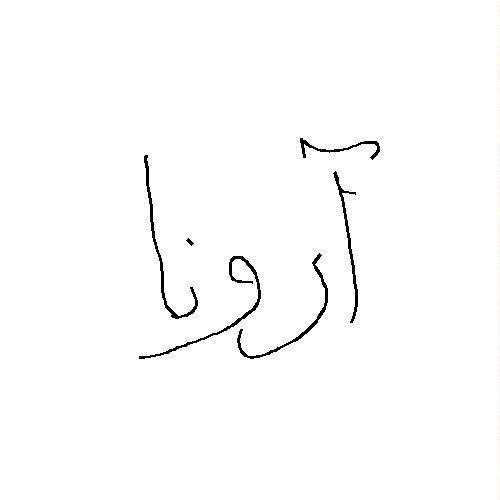 آرونا